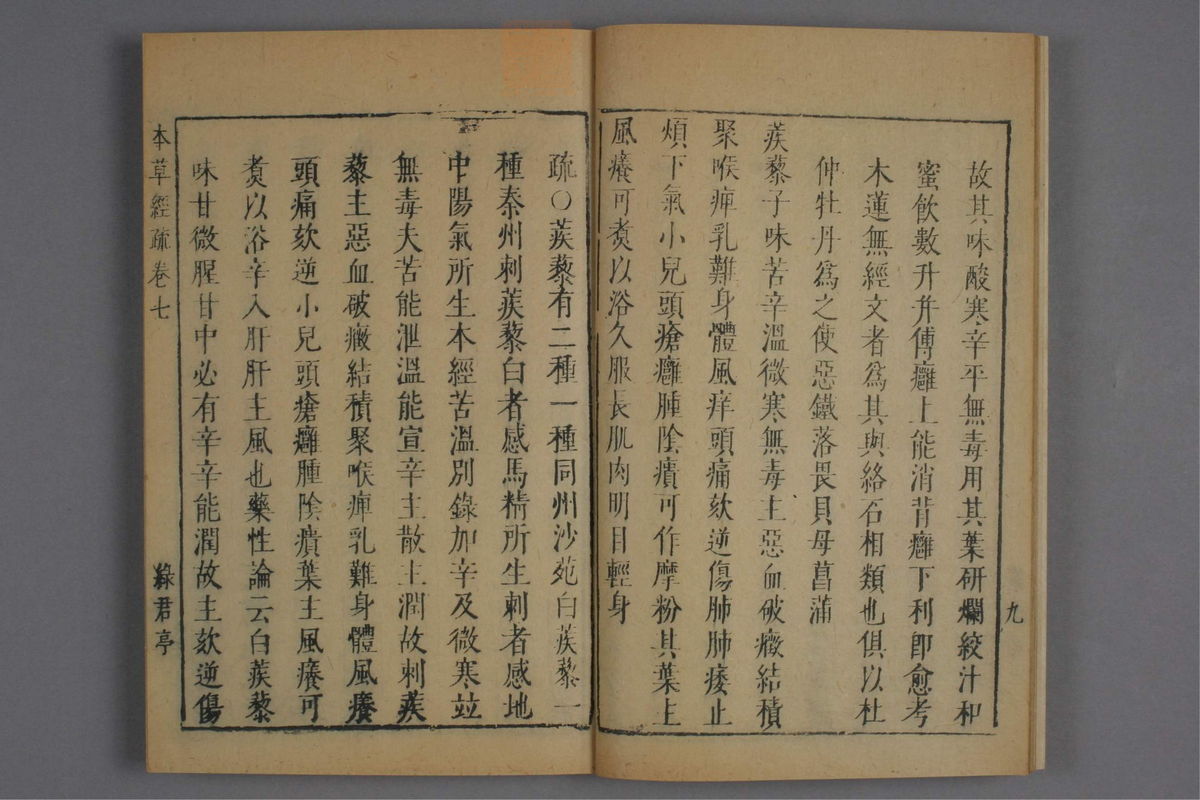 故其味酸寒辛平無毒用其葉研爛絞汁和
蜜飲數升并傅癰上能消背癰下利卽愈考
木蓮無經文者爲其與絡石相類也俱以杜
仲牡丹爲之使惡鐵落畏貝母菖蒲
蒺藜子味苦辛溫微寒無毒主惡血破癥結積
聚喉痺乳難身體風痒頭痛欬逆傷肺肺痿止
煩下氣小兒頭瘡癰腫陰㿉可作摩粉其葉主
風癢可煑以浴久服長肌肉明目輕身
九
疏○蒺藜有二種一種同州沙苑白蒺藜一
種秦州刺蒺藜白者感馬精所生刺者感地
中陽氣所生本經苦溫別錄加辛及微寒並
無毒夫苦能泄溫能宣辛主散主潤故刺蒺
藜主惡血破癥結積聚喉痺乳難身體風癢
頭痛欬逆小兒頭瘡癰腫陰㿉葉主風癢可
煑以浴辛入肝肝主風也藥性論云白蒺藜
味甘微腥甘中必有辛辛能潤故主欬逆傷
本草經疏卷七
綠君亭